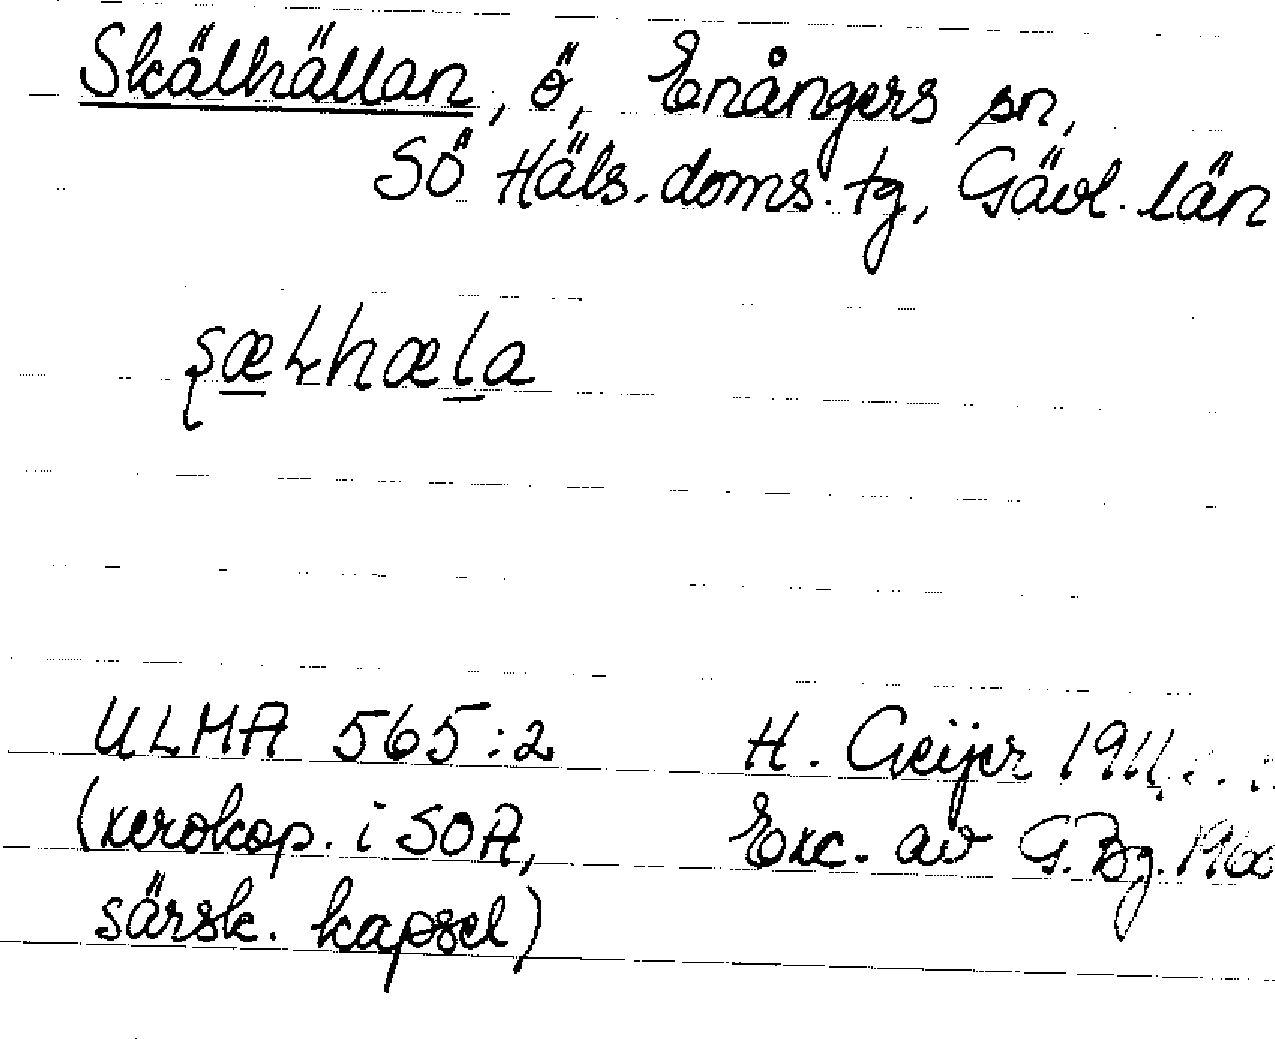 Skälhällan, ö, Enångers sn,
Sö Häls. doms. tg, Gävl. län
ʂæLhæla
ULMA 565:2 H. Geijer 1911
(xerokop. i SOA, Exc. av G. Bg. 1960
särsk. kapsel)